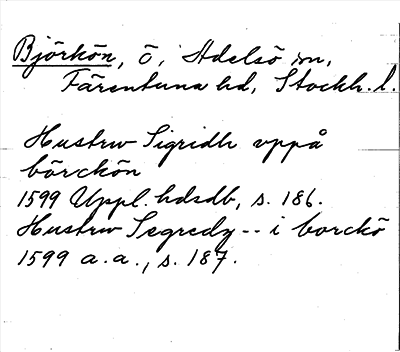 Björkön, ö, Adelsö sn,
Färentuna hd, Stockh. l.
Hustrw Sigridh vppå
börckön
1599 Uppl. hdsdb, s. 186.
Hustrw Segredy -- i borckö
1599 a. a., s. 187.